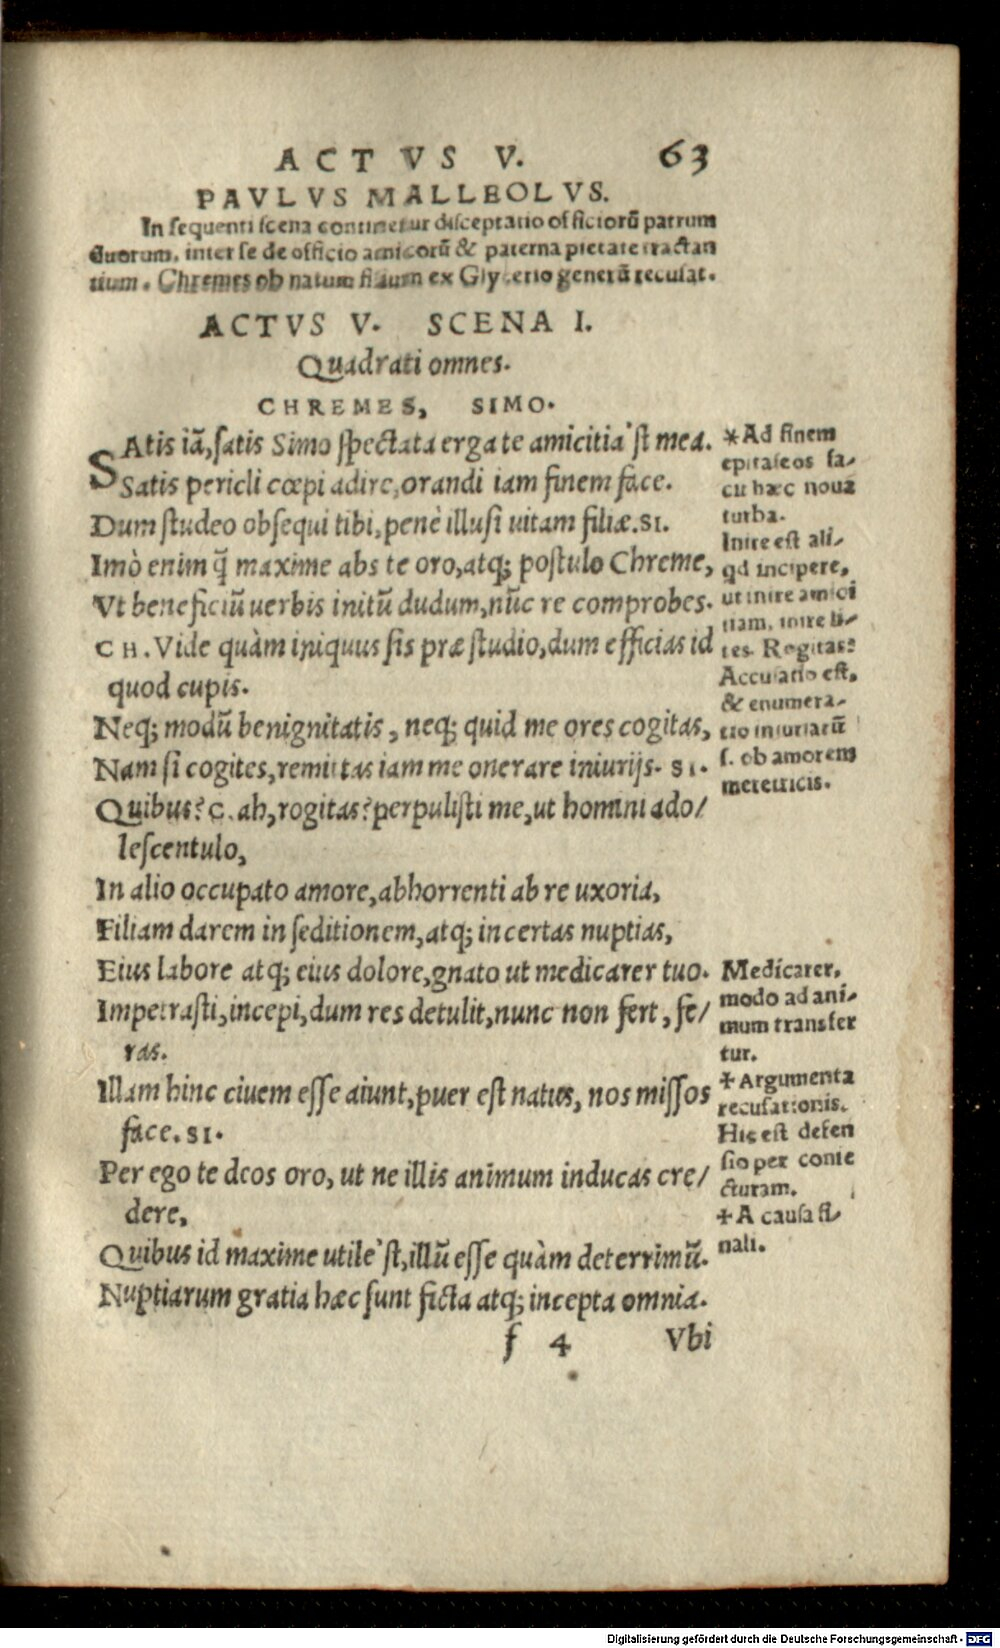 ACTVS V. 63
PAVLVS MALLEOLVS.
In sequenti scena continetur disceptatio officiorū patrum
duorum, inter se de officio amicorū & paterna pietate tractan
tium. Chremes ob natum filium ex Glycerio generū recusat.
ACTVS V. SCENA I.
Quadrati omnes.
CHREMES, SIMO.
SAtis iā, satis Simo spectata erga te amicitia'st mea.
Satis pericli cœpi adire, orandi iam finem face.
Dum studeo obsequi tibi, penè illusi uitam filiæ. SI.
Imò enim q̄ maxime abs te oro, atq; postulo Chreme,
Vt beneficiū uerbis initū dudum, nūc re comprobes.
CH. Vide quàm iniquus sis præ studio, dum efficias id
quod cupis.
Neq; modū benignitatis, neq; quid me ores cogitas,
Nam si cogites, remittas iam me onerare iniurijs. SI.
Quibus? C. ah, rogitas? perpulisti me, ut homini ado/
lescentulo,
In alio occupato amore, abhorrenti ab re uxoria,
Filiam darem in seditionem, atq; incertas nuptias,
Eius labore atq; eius dolore, gnato ut medicarer tuo.
Impetrasti, incepi, dum res detulit, nunc non fert, fe/
ras.
Illam hinc ciuem esse aiunt, puer est natus, nos missos
face. SI.
Per ego te deos oro, ut ne illis animum inducas cre/
dere,
Quibus id maxime utile'st, illū esse quàm deterrimū.
Nuptiarum gratia hæc sunt ficta atq; incepta omnia.
f 4 Vbi
*Ad finem
epitaseos fa-
cu hæc noua
turba.
Inire est ali-
qd incipere,
ut inire amici
tiam, inire li-
tes. Rogitas?
Accusatio est,
& enumera-
tio iniuriarū
s. ob amorem
meretricis.
Medicarer,
modo ad ani-
mum transfer
tur.
+ Argumenta
recusationis.
Hic est defen
sio per conie
cturam.
+ A causa fi-
nali.
Digitalisierung gefördert durch die Deutsche Forschungsgemeinschaft - DFG